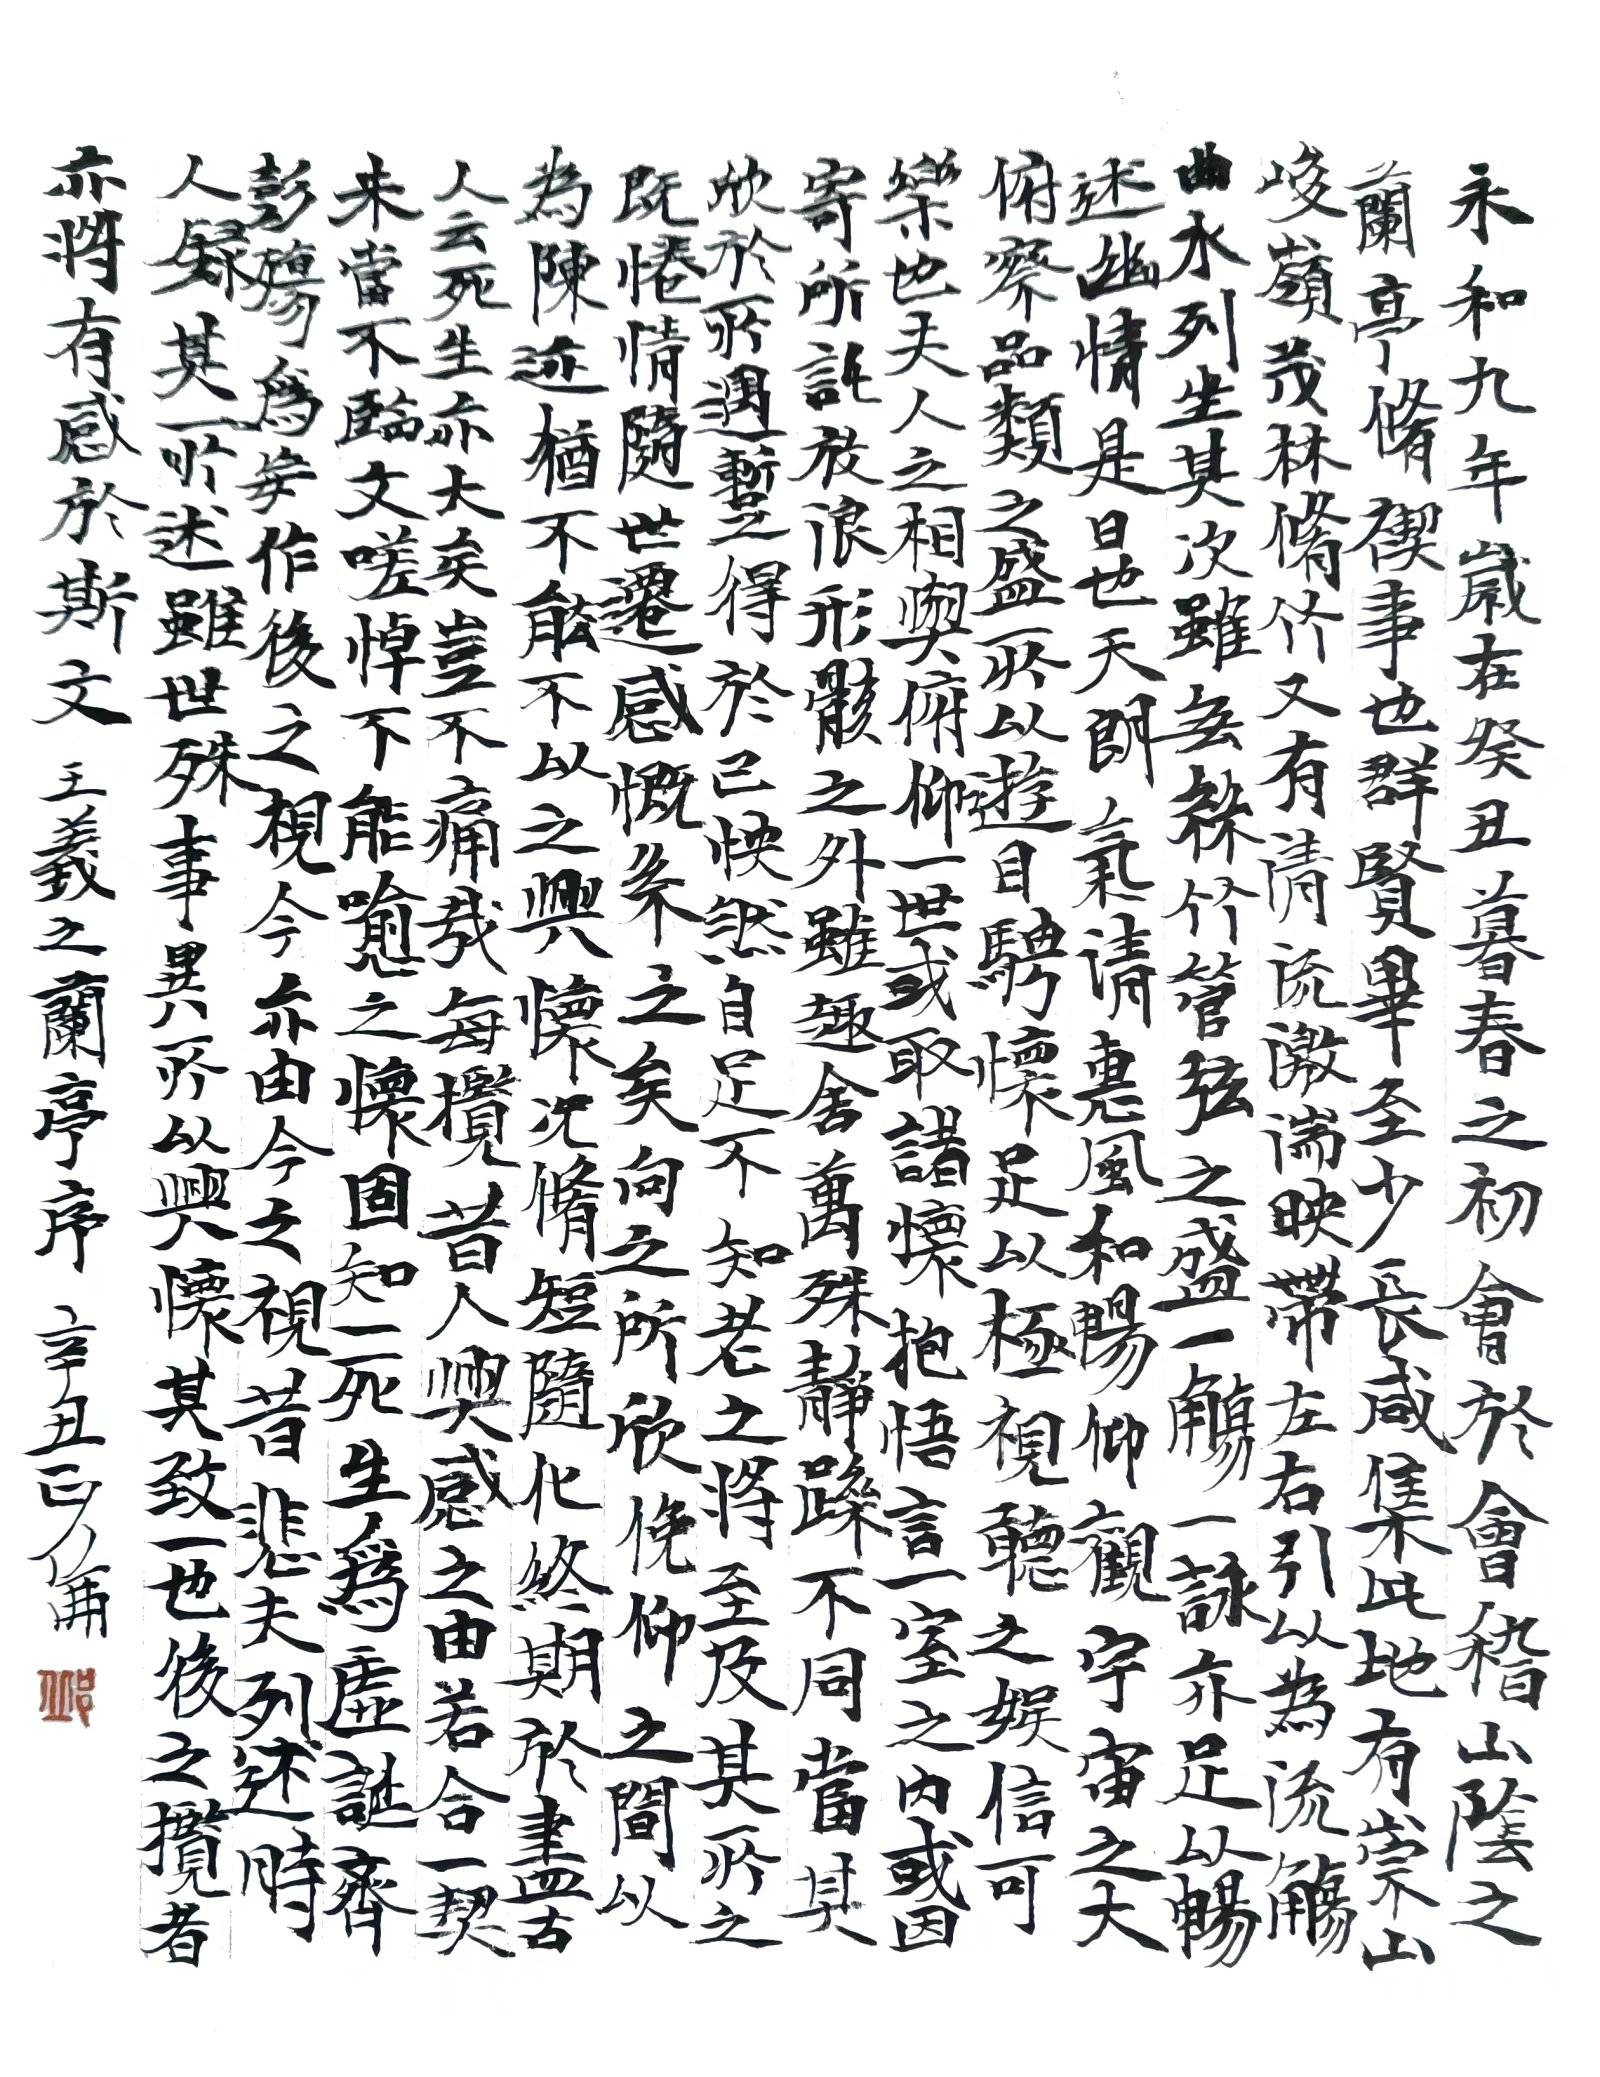 永和九年歲在癸丑暮春之初會於會稽山陰之
蘭亭脩禊事也群賢畢至少長咸集此地有崇山
峻嶺茂林脩竹又有清流激湍映帶左右引以為流觴
曲水列坐其次雖無絲竹管弦之盛一觴一詠亦足以暢
述幽情是日也天朗氣清惠風和暢仰觀宇宙之大
俯察品類之盛所以遊目騁懷足以極視聽之娛信可
樂也夫人之相與俯仰一世或取諸懷抱悟言一室之內或因
寄所託放浪形骸之外雖趣舍萬殊靜躁不同當其
欣於所遇暫得於己快然自足不知老之將至及其所之
既惓情隨世遷感慨係之矣向之所欣俛仰之間以
為陳迹猶不能不以之興懷況脩短隨化終期於盡古
人云死生亦大矣豈不痛哉每攬昔人興感之由若合一契
未嘗不臨文嗟悼不能喻之懷固知一死生為虛誕齊
彭殤為妄作後之視今亦由今之視昔悲夫列述時
人錄其所述雖世殊事異所以興懷其致一也後之攬者
亦將有感於斯文 王羲之蘭亭序 辛丑